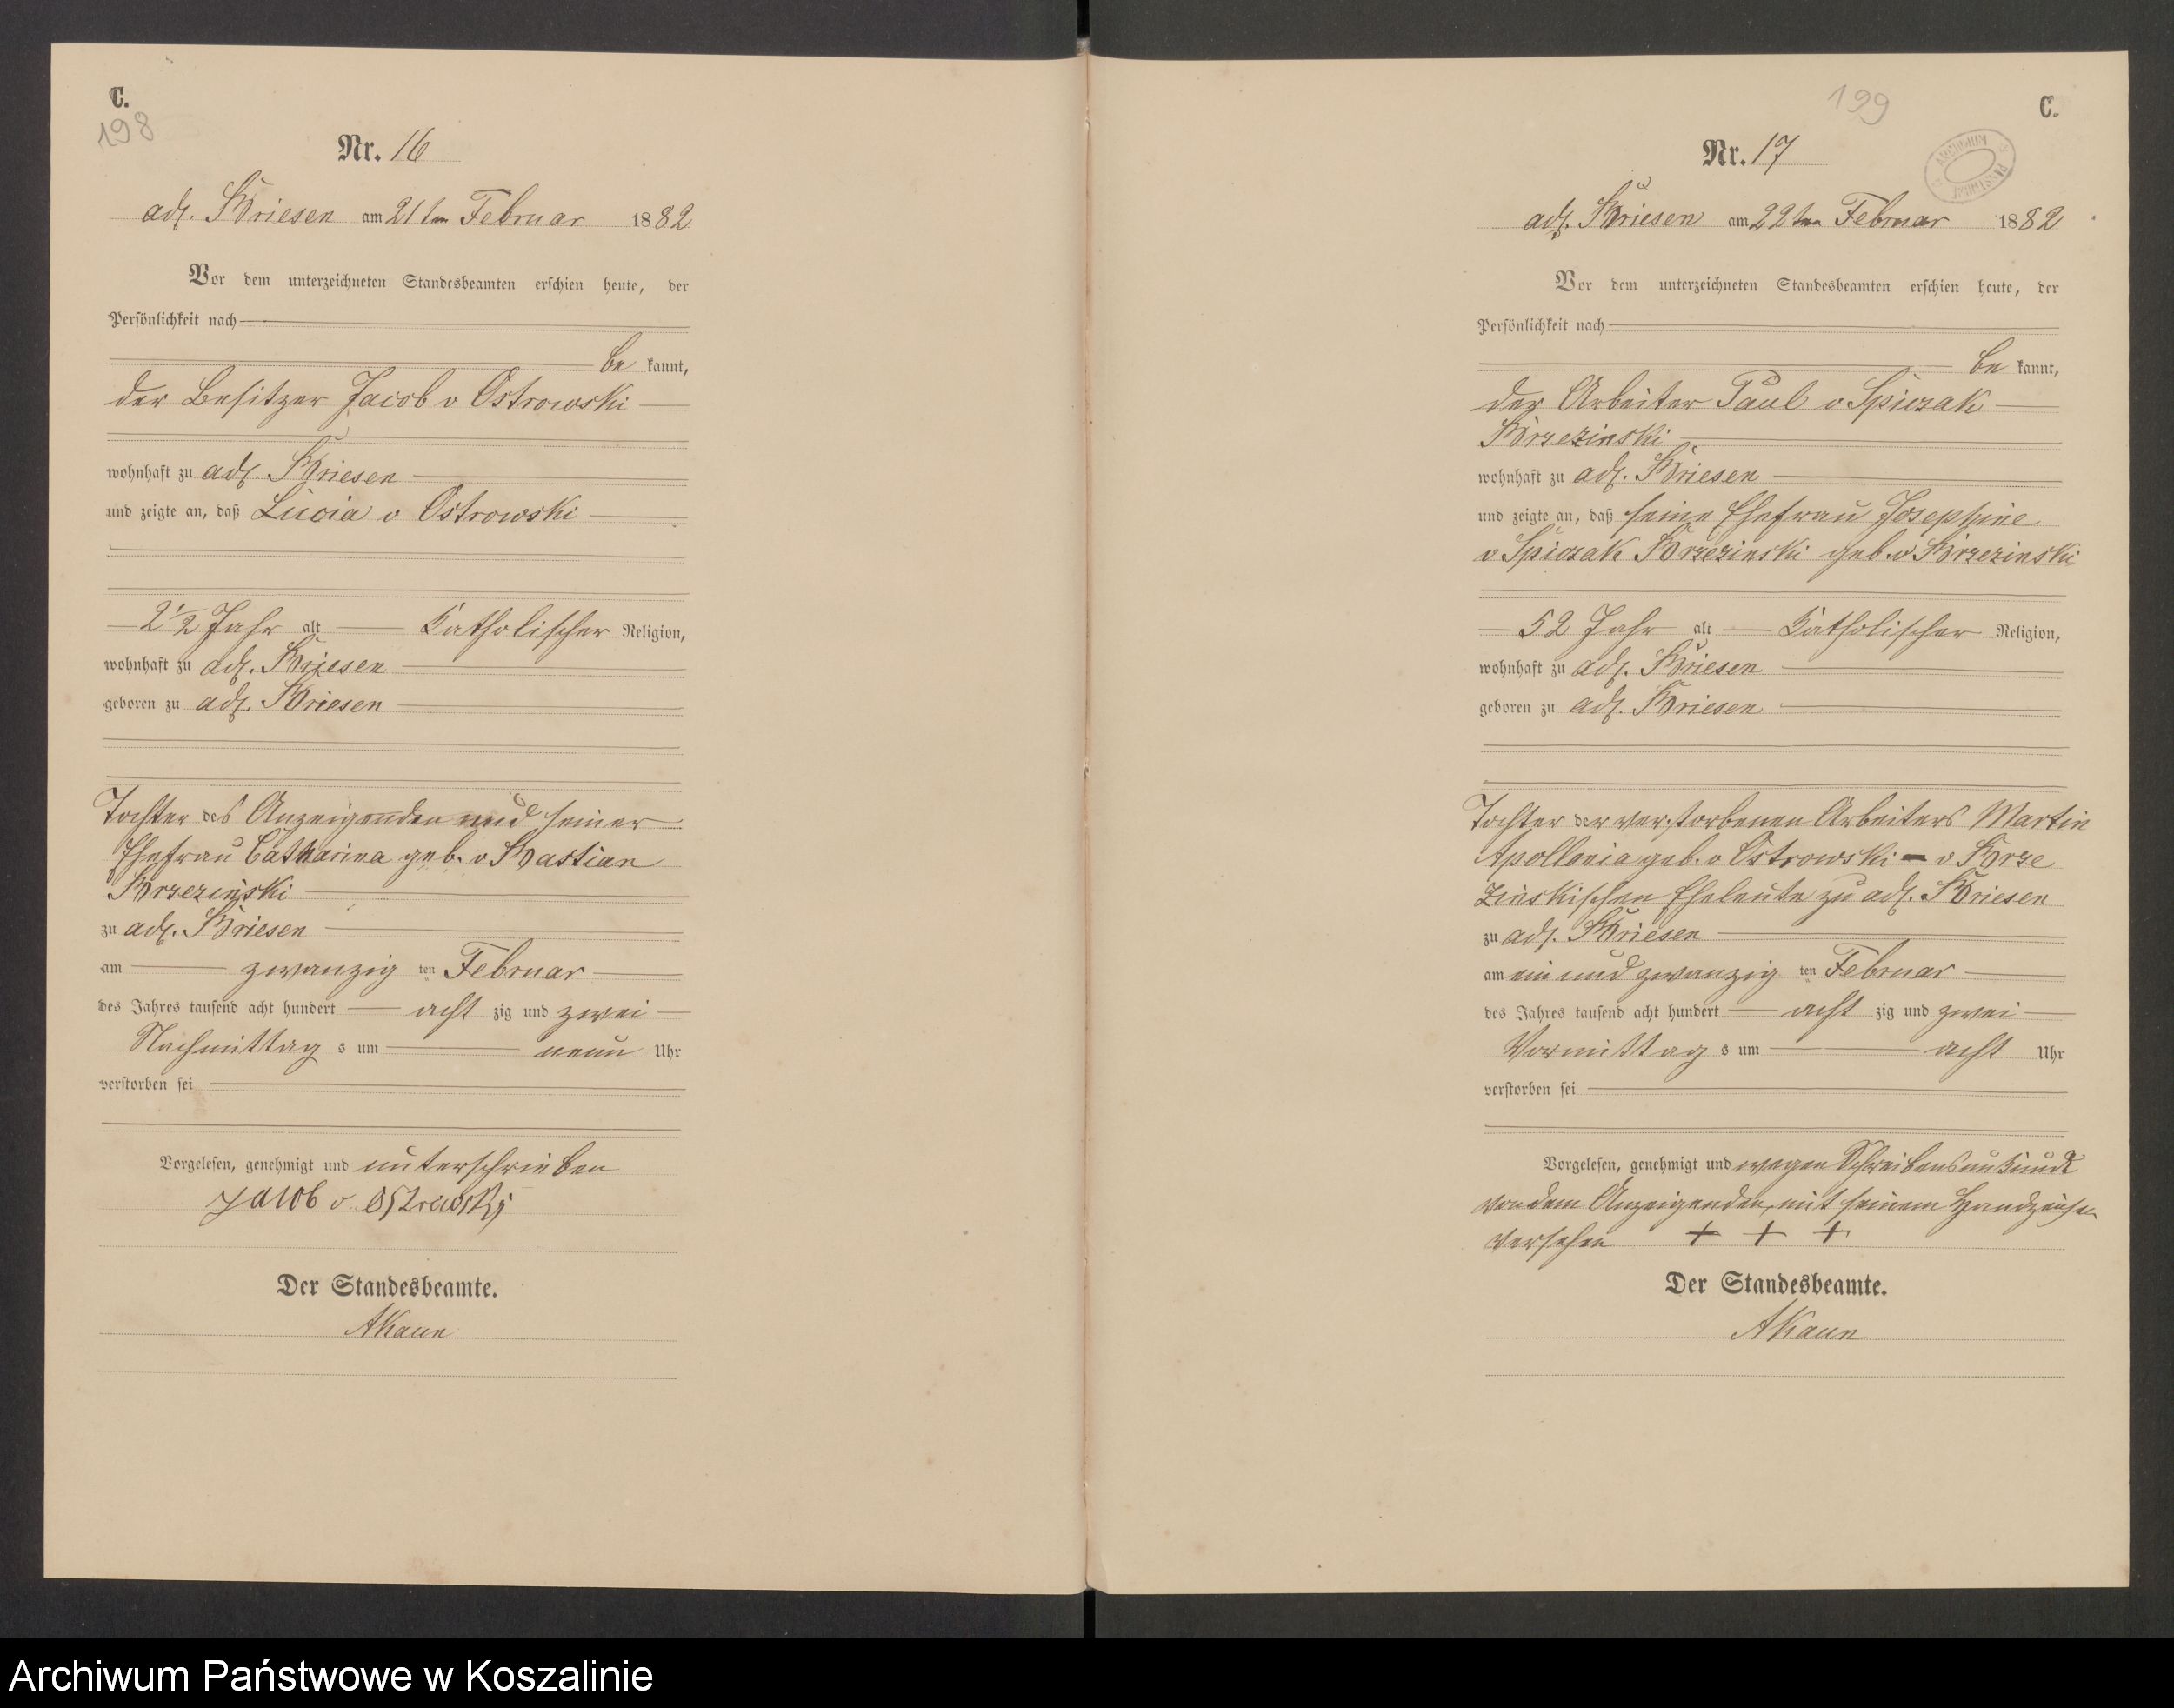 C.
198
Nr. 16
adl. Briesen am 21ten Februar 1882
Vor dem unterzeichneten Standesbeamten erschien heute, der
Persönlichkeit nach
be kannt,
der Besitzer Jacob v Ostrowski
wohnhaft zu adl. Briesen
und zeigte an, daß Lucia v Ostrowski
2 1/2 Jahr alt Katholischer Religion,
wohnhaft zu adl. Briesen
geboren zu adl. Briesen
Tochter des Anzeigenden und seiner
Ehefrau Catharina geb. v Bastian
Brzezinski
zu adl. Briesen
am zwanzig ten Februar
des Jahres tausend acht hundert acht zig und zwei
Nachmittag s um neun Uhr
verstorben sei
Vorgelesen, genehmigt und unterschrieben
Jacob v Ostrowski
Der Standesbeamte.
AKaun
199
C.
Nr. 17
ARCHIWUM
adl. Briesen am 22ten Februar 1882
Vor dem unterzeichneten Standesbeamten erschien heute, der
Persönlichkeit nach
be kannt,
der Arbeiter Paul v Spiczak
Brzezinski
wohnhaft zu adl. Briesen
und zeigte an, daß seine Ehefrau Josephine
v Spiczak Brzezinski geb. v Brzezinski
52 Jahr alt Katholischer Religion,
wohnhaft zu adl. Briesen
geboren zu adl. Briesen
Tochter der verstorbenen Arbeiters Martin
Apollonia geb. v Ostrowski - v Brze
zinskischen Eheleute zu adl. Briesen
zu adl. Briesen
am ein und zwanzig ten Februar
des Jahres tausend acht hundert acht zig und zwei
Vormittag s um acht Uhr
verstorben sei
Vorgelesen, genehmigt und wegen Schreibensunkunde
von dem Anzeigenden, mit seinem Handzeichen
versehen + + +
Der Standesbeamte.
AKaun
Archiwum Państwowe w Koszalinie